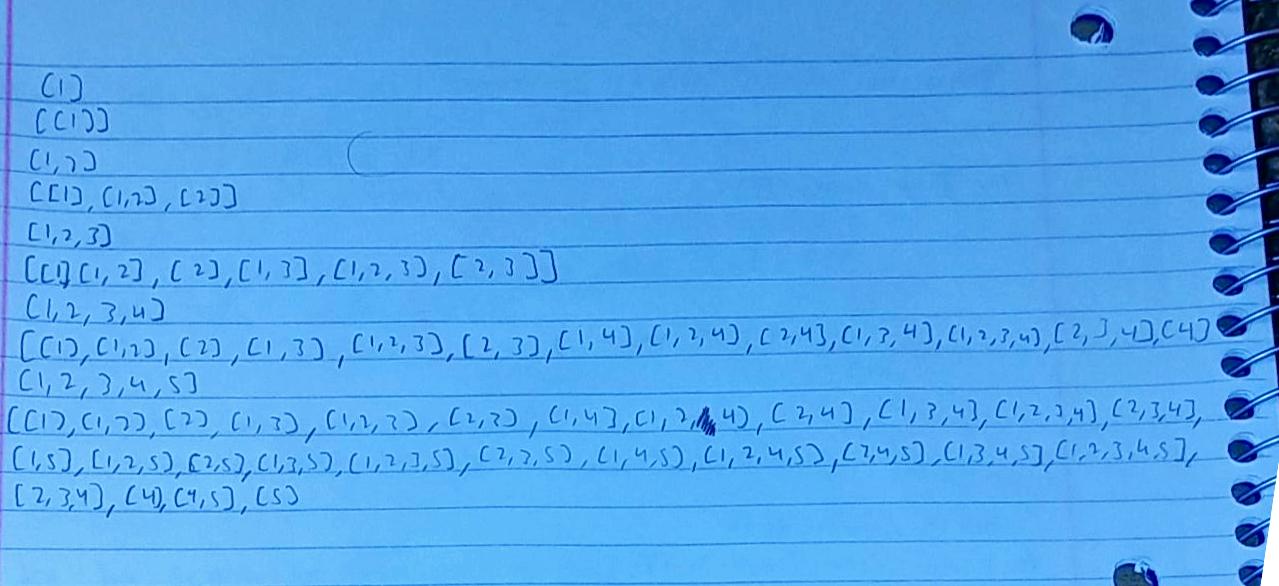 [1]
[[1]]
[1,2]
[[1], [1,2], [2]]
[1,2,3]
[[1] [1, 2], [2], [1, 3], [1,2,3], [2, 3]]
[1, 2, 3, 4]
[[1], [1,2], [2], [1, 3], [1, 2, 3], [2, 3], [1, 4], [1, 2, 4], [2,4], [1, 3, 4], [1,2,3,4], [2, 3, 4], [4]
[1, 2, 3, 4, 5]
[[1], [1,2], [2], [1, 3], [1, 2, 3], [2,3], [1,4], [1, 2, 4], [2,4], [1,3,4], [1,2,3,4], [2,3,4],
[1,5], [1,2,5], [2,5], [1,3,5], [1,2,3,5], [2,3,5], [1,4,5], [1,2,4,5], [2,4,5], [1,3,4,5], [1,2,3,4,5],
[2,3,4], [4], [4,5], [5]